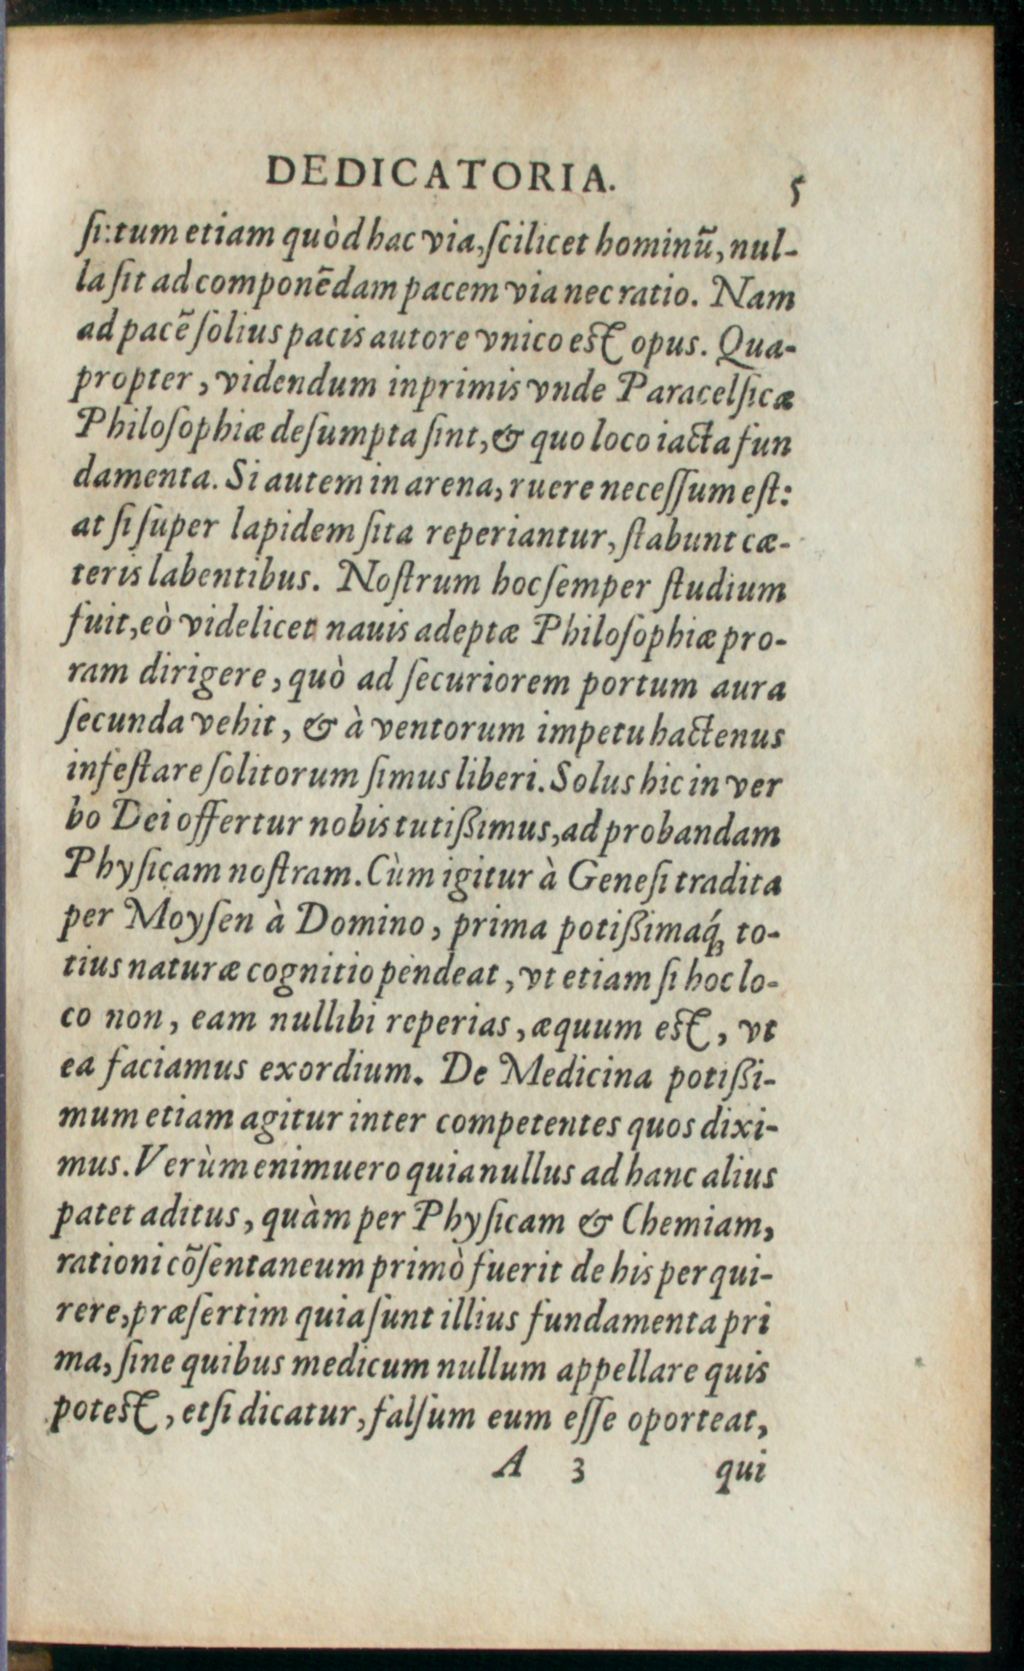 DEDICATORIA. 5
ſi:tum etiam quòd hac via,ſcilicet hominũ, nul-
la ſit ad componẽdam pacem via nec ratio. Nam
ad pacẽ ſolius pacis autore vnico est opus. Qua-
propter, videndum inprimis vnde Paracelſicæ
Philoſophiæ deſumpta ſint,& quo loco iacta fun
damenta. Si autem in arena, ruere neceſſum eſt:
at ſi ſuper lapidem ſita reperiantur, ſtabunt cæ-
teris labentibus. Noſtrum hoc ſemper ſtudium
fuit,eò videlicet nauis adeptæ Philoſophiæ pro-
ram dirigere, quò ad ſecuriorem portum aura
ſecunda vehit, & à ventorum impetu hactenus
infeſtare ſolitorum ſimus liberi. Solus hic in ver
bo Dei offertur nobis tutißimus,ad probandam
Phyſicam noſtram. Cùm igitur à Geneſi tradita
per Moyſen à Domino, prima potißimaq́; to-
tius naturæ cognitio pendeat, vt etiam ſi hoc lo-
co non, eam nullibi reperias, æquum est, vt
ea faciamus exordium. De Medicina potißi-
mum etiam agitur inter competentes quos dixi-
mus. Verùm enimuero quia nullus ad hanc alius
patet aditus, quàm per Phyſicam & Chemiam,
rationi cõſentaneum primò fuerit de his perqui-
rere,præſertim quia ſunt illius fundamenta pri
ma, ſine quibus medicum nullum appellare quis
potest, etſi dicatur, falſum eum eſſe oporteat,
A 3 qui